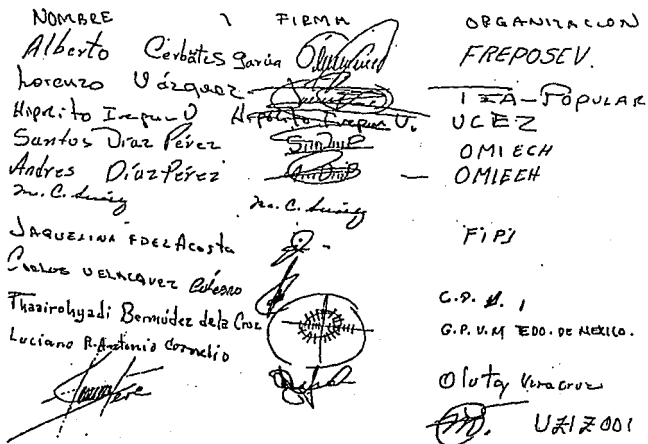 NOMBRE FIRMA ORGANIZACION
Alberto Cerbates Garcia FREPOSEV.
Lorenzo Vázquez IZA-POPULAR
Hipolito Irepan U Hipolito Irepan U. UCEZ
Santos Díaz Pérez OMIECH
Andres Díaz Pérez — OMIECH
M. C. Suárez M. C. Suárez
JAQUELINA FDEZ Acosta FIPI
CARLOS VELACQUEZ C.P.
Thaairohyadi Bermúdez de la Cruz G.P.V.M EDO. DE MEXICO.
Luciano R. Antonio Cornelio
Oluta Veracruz
UZIZOO1